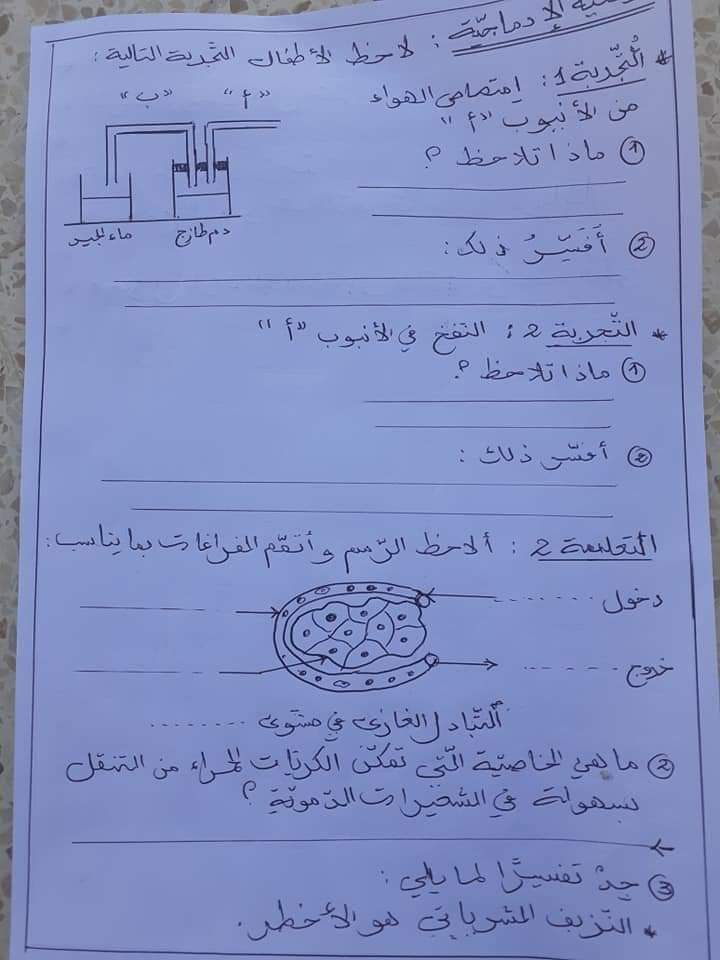 الإدماجيّة : لاحظ الأطفال التّجربة التالية :
* التّجربة 1 : إمتصاص الهواء
من الأنبوب "أ"
"أ" "ب"
① ماذا تلاحظ ؟
دم طازج ماء الجير
② أفَسِّرُ ذلك :
* التّجربة 2 : النّفخ في الأنبوب "أ"
① ماذا تلاحظ ؟
② أفسّر ذلك :
التعليمة 2 : ألاحظ الرّسم و أتمّم الفراغات بما يناسب :
دخول ..........
خروج ..........
التّبادل الغازي في مستوى ..........
② ما هي الخاصّية الّتي تمكّن الكريّات الحمراء من التنقل
بسهولة في الشعيرات الدّمويّة ؟
③ جِدْ تفسيرًا لما يلي :
* النّزيف الشرياني هو الأخطر.